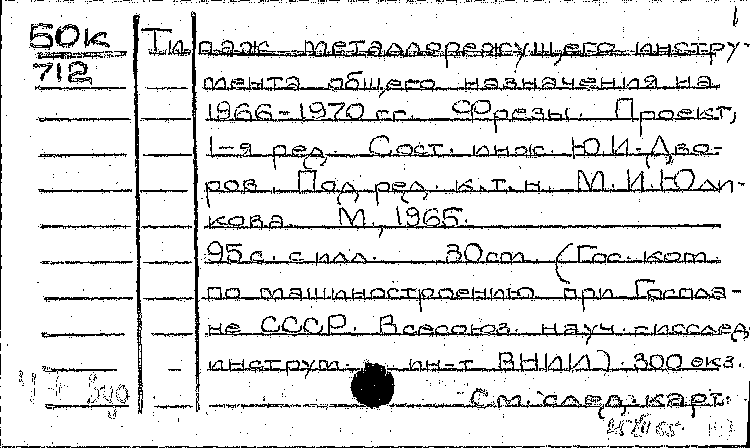 1
50к
712
Типаж металлорежущего инстру-
мента общего назначения на
1966-1970 гг. Фрезы. Проект,
1-я ред. Сост. инж. Ю.И. Дво-
ров. Под ред. к.т.н. М.И. Юли-
кова. М., 1965.
95 с. с илл. 30 см. (Гос. ком.
по машиностроению при Госпла-
не СССР. Всесоюз. науч.-исслед.
инструм. ин-т ВНИИ). 300 экз.
См. след. карт.